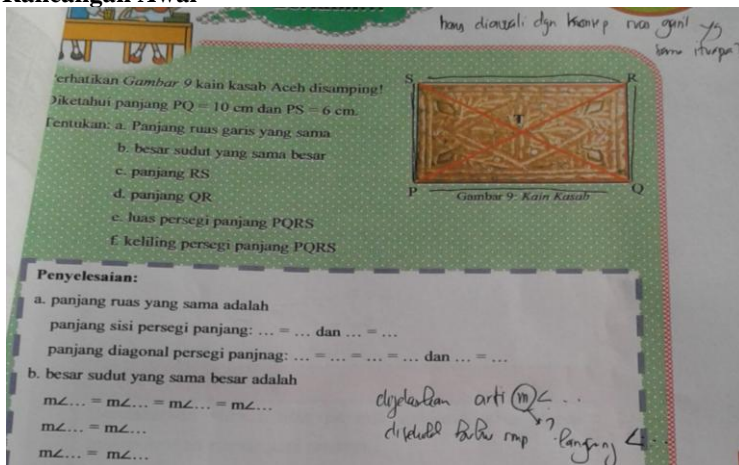 Rancangan Awal
hons diawali dgn konsep ruas garis yg
sama itu apa?
erhatikan Gambar 9 kain kasab Aceh disamping!
Diketahui panjang PQ = 10 cm dan PS = 6 cm.
Tentukan: a. Panjang ruas garis yang sama
b. besar sudut yang sama besar
c. panjang RS
d. panjang QR
e. luas persegi panjang PQRS
f. keliling persegi panjang PQRS
S R
T
P Q
Gambar 9: Kain Kasab
Penyelesaian:
a. panjang ruas yang sama adalah
panjang sisi persegi panjang: ... = ... dan ... = ...
panjang diagonal persegi panjnag: ... = ... = ... = ... dan ... = ...
b. besar sudut yang sama besar adalah
m∠... = m∠... = m∠... = m∠...
m∠... = m∠...
m∠... = m∠...
dijelaskan arti m∠ ...
? langsung ∠ ...